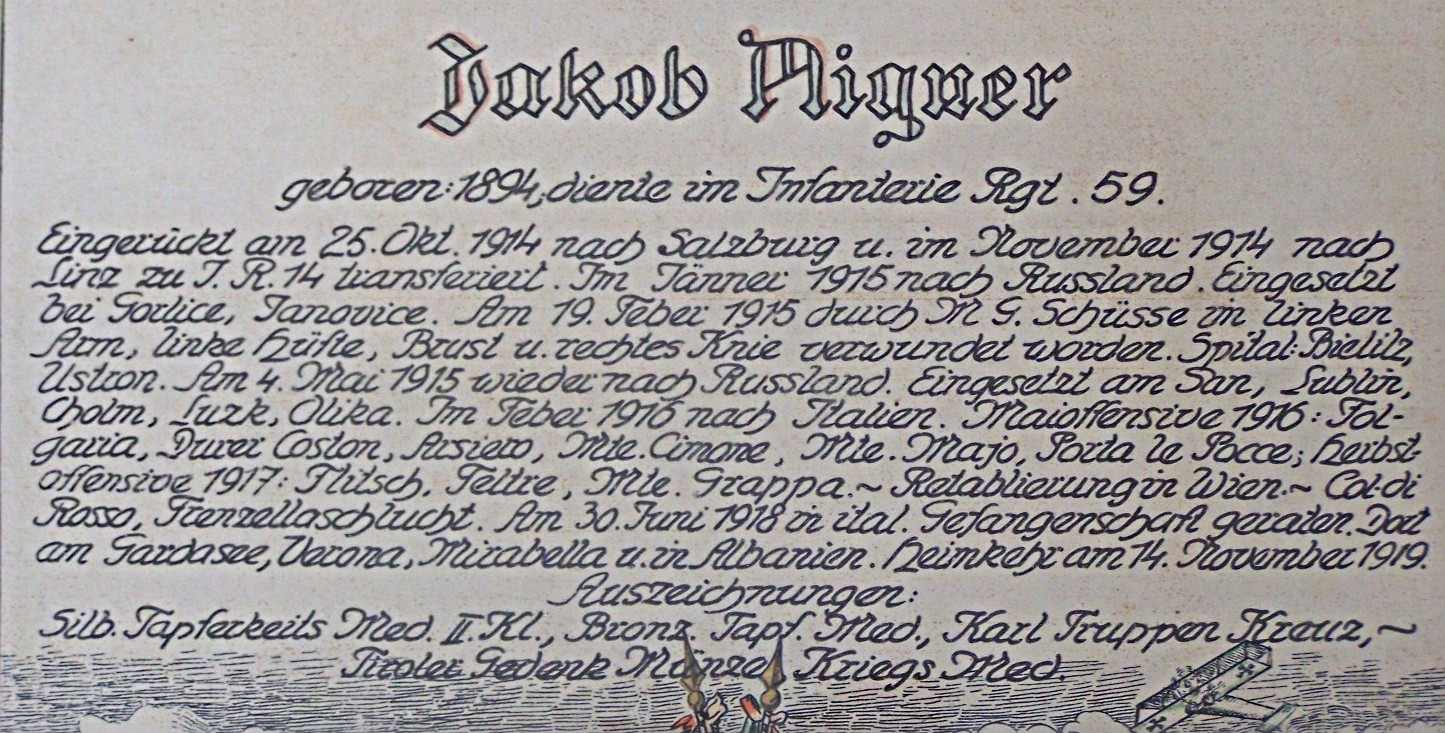 Jakob Aigner
geboren: 1894, diente im Infanterie Rgt. 59.
Eingerückt am 25. Okt. 1914 nach Salzburg u. im November 1914 nach
Linz zu I. R. 14 transferiert. Im Jänner 1915 nach Russland. Eingesetzt
bei Gorlice, Janovice. Am 19. Feber 1915 durch M G. Schüsse im linken
Arm, linke Hüfte, Brust u. rechtes Knie verwundet worden. Spital: Bielitz,
Ustron. Am 4. Mai 1915 wieder nach Russland. Eingesetzt am San, Lublin,
Cholm, Luzk, Olika. Im Feber 1916 nach Italien. Maioffensive 1916: Fol-
garia, Durer Coston, Arsiero, Mte. Cimone, Mte. Majo, Porta le Pocce; Herbst-
offensive 1917: Flitsch, Feltre, Mte. Grappa.~ Retablierung in Wien.~ Col di
Rosso, Frenzellaschlucht. Am 30. Juni 1918 in ital. Gefangenschaft geraten. Dort
am Gardasee, Verona, Mirabella u. in Albanien. Heimkehr am 14. November 1919.
Auszeichnungen:
Silb. Tapferkeits Med. II. Kl., Bronz. Tapf. Med., Karl Truppen Kreuz,~
Tiroler Gedenk Münze, Kriegs Med.